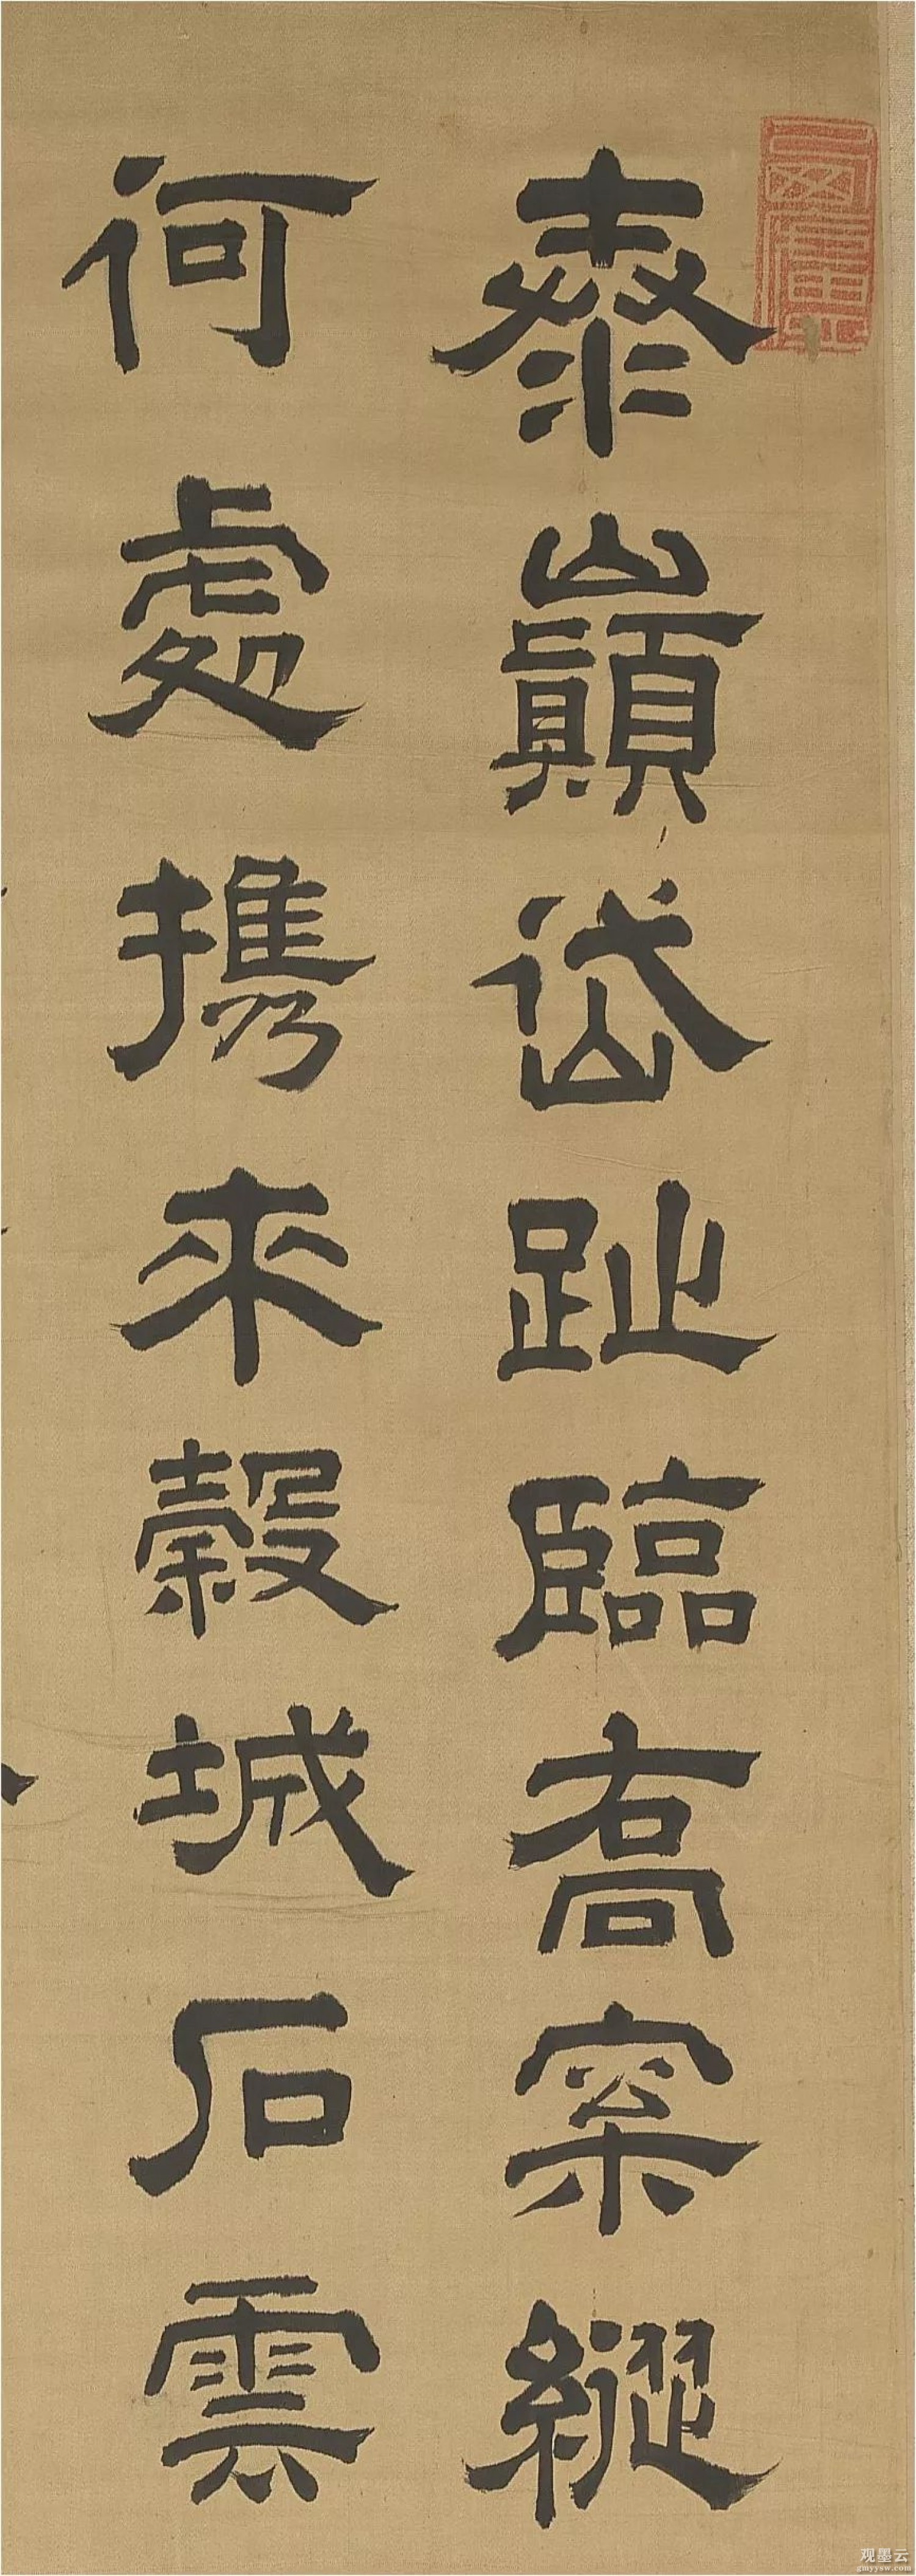 泰巔岱趾臨高案縱
何處携來穀城石雲
观墨云
gmyysw.com